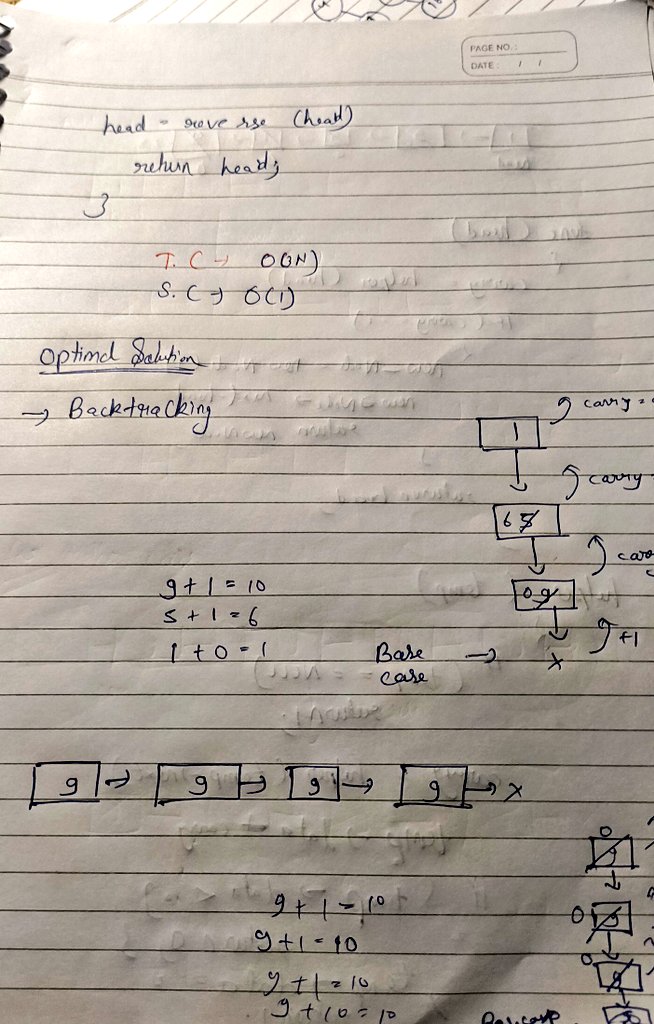 PAGE NO.:
DATE: / /
head = reverse (head)
return head;
}
T. C → O(3N)
S. C → O(1)
Optimal Solution
→ Backtracking
carry =
1
carry
6 5
9 + 1 = 10
5 + 1 = 6
1 + 0 = 1
0 9
+1
Base → x
case
9 → 9 → 9 → 9 → x
0
9
9 + 1 = 10
0 9
9 + 1 = 10
0
9
9 + 1 = 10
9 + 10 = 10